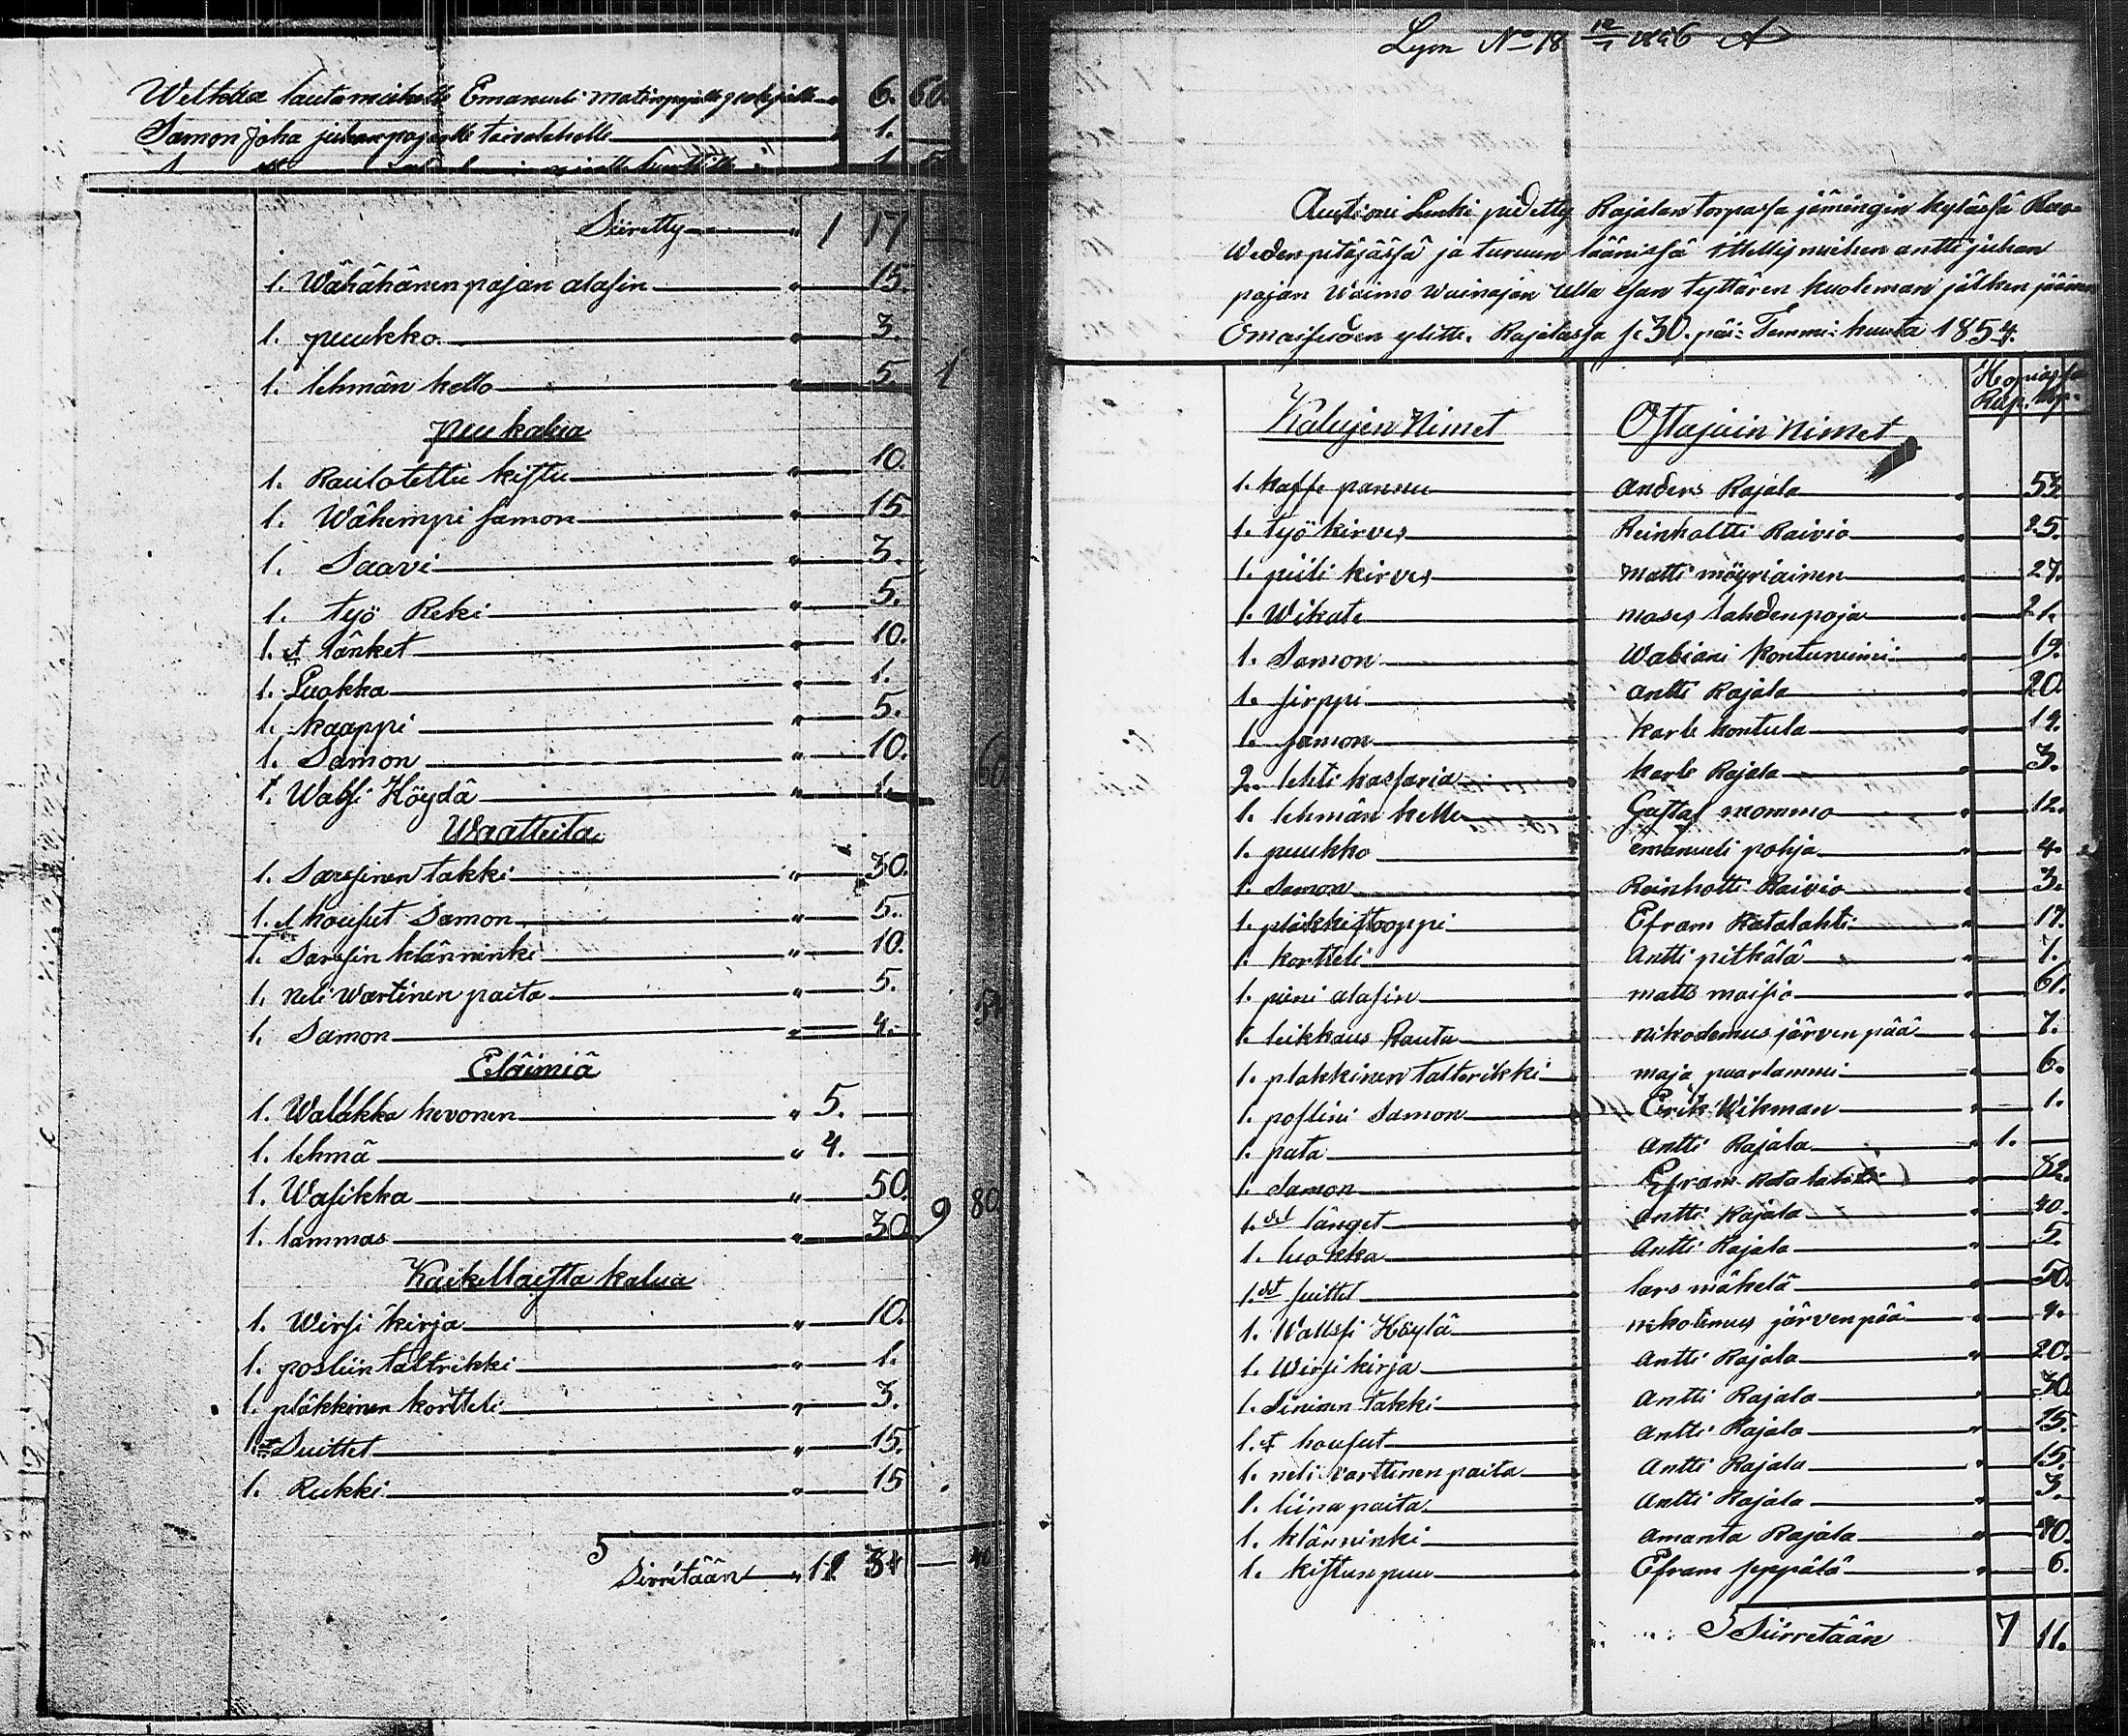 Welkaa lautamiehelle Emanueli pohjalle 6. 60.
Samon Joha juhanpojalle taivalahelle 1.
Siiretty 1 17
1. Wähähänen pajan alasin 15.
1. puukko 3.
1. lehmän kello 5. 1
puu kalua
1. Raulotettu kistu 10.
1. Wähempi samon 15
1. Saavi 3.
1. työ Reki 5.
1. t länket 10.
1. Luokka 1.
1. kaappi 5.
1. Samon 10. 60
1. Walsi Höydä 1.
Waatteita
1. Saresinen takki 30.
1. t housut Samon 5.
1. Saresin klänninki 10.
1. neli wartinen paita 5.
1. Samon 4. 54
Eläimiä
1. Walakka hevonen 5.
1. lehmä 4.
1. Wasikka 50.
1. lammas 30. 9 80.
Kaikellaista kalua
1. Wirsi kirja 10.
1. posliin taltrikki 1.
1. pläkkinen kortteli 3.
1. t Suittet 15.
1. Rukki 15
Siirretään 11 31 40
Lyon No 18 1896 A
Auktioni Luki pidetty Rajalan torpassa jämingin kylässä Ruo-
Weden pitäjässä ja turuun läänissä ittellis miehen antti juhan
pojan Waimo Wainajan Ulla esan tyttären kuoleman jälken jäänen
Omaisuden ylitte. Rajalassa se 30. päi: Tammi: kuuta 1854.
Kalujen Nimet Ostajain nimet Hopiassa
Rup. kop.
1. kaffe pannu Anders Rajala 53
1. työ kirves Reinholtti Raivio 25.
1. piili kirves Matti möyriäinen 27.
1. Wikate moses lahdenpoja 21.
1. Samon Wabiani Kontuniemi 19.
1. sirppi antti Rajala 20.
1. samon karle kontula 19.
2. lehti kassaria karle Rajala 3.
1. lehmän kello Gustaf mommo 12.
1. puukko emanueli pohja 4.
1. Samon Reinholtti Raivio 3.
1. pläkkistooppi Efram Katalahti 17.
1. kortteli Antti pitkälä 7.
1. pieni alasin matts maisio 61.
1. leikkaus Rauta nikodemus järven pää 7.
1. plakkinen talterikki maja puarlammi 6.
1. poslini Samon Erik Wihman 1.
1. pata Antti Rajala 1.
1. Samon Efram Katalahti 82.
1. st länget antti Rajala 40.
1. luokka Antti Rajala 5.
1. st suittet lars mäkelä 50.
1. Wallssi Höylä nikotimus järvenpää 4.
1. Wirsi kirja Antti Rajala 20.
1. Sininen takki Antti Rajala 30
1. t housut Antti Rajala 15.
1. neli varttinen paita Antti Rajala 15.
1. liina paita Antti Rajala 3.
1. klänninki Amanta Rajala 40.
1. kistun puu Efram seppälä 6.
Siirretään 7 11.